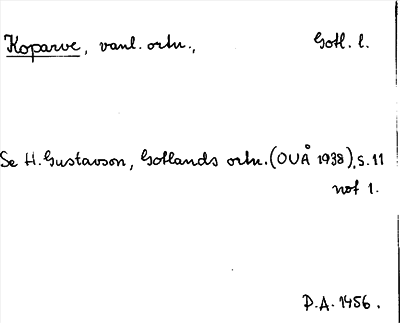 Koparve, vanl. ortn., Gotl. l.
Se H. Gustavson, Gotlands ortn. (OUÅ 1938), s. 11
not 1.
P.A. 1456.